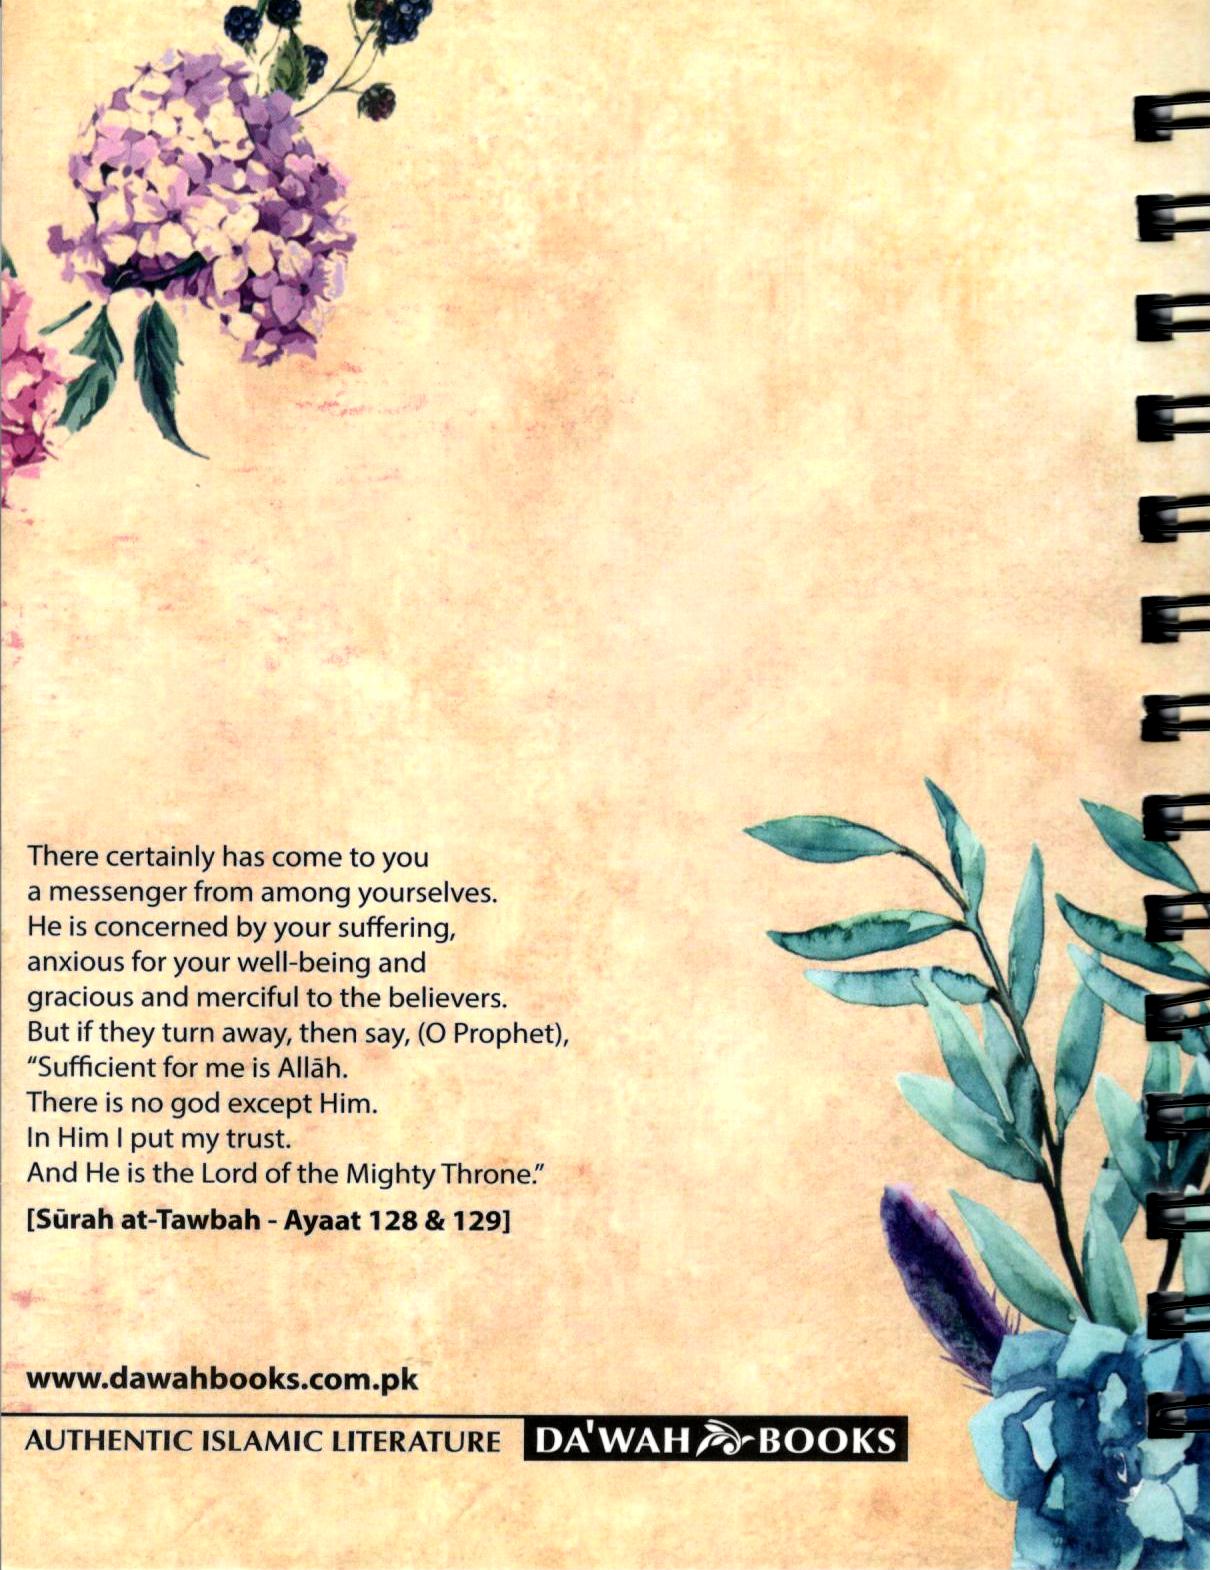 There certainly has come to you
a messenger from among yourselves.
He is concerned by your suffering,
anxious for your well-being and
gracious and merciful to the believers.
But if they turn away, then say, (O Prophet),
“Sufficient for me is Allāh.
There is no god except Him.
In Him I put my trust.
And He is the Lord of the Mighty Throne.”
[Sūrah at-Tawbah - Ayaat 128 & 129]
www.dawahbooks.com.pk
AUTHENTIC ISLAMIC LITERATURE DA'WAH BOOKS